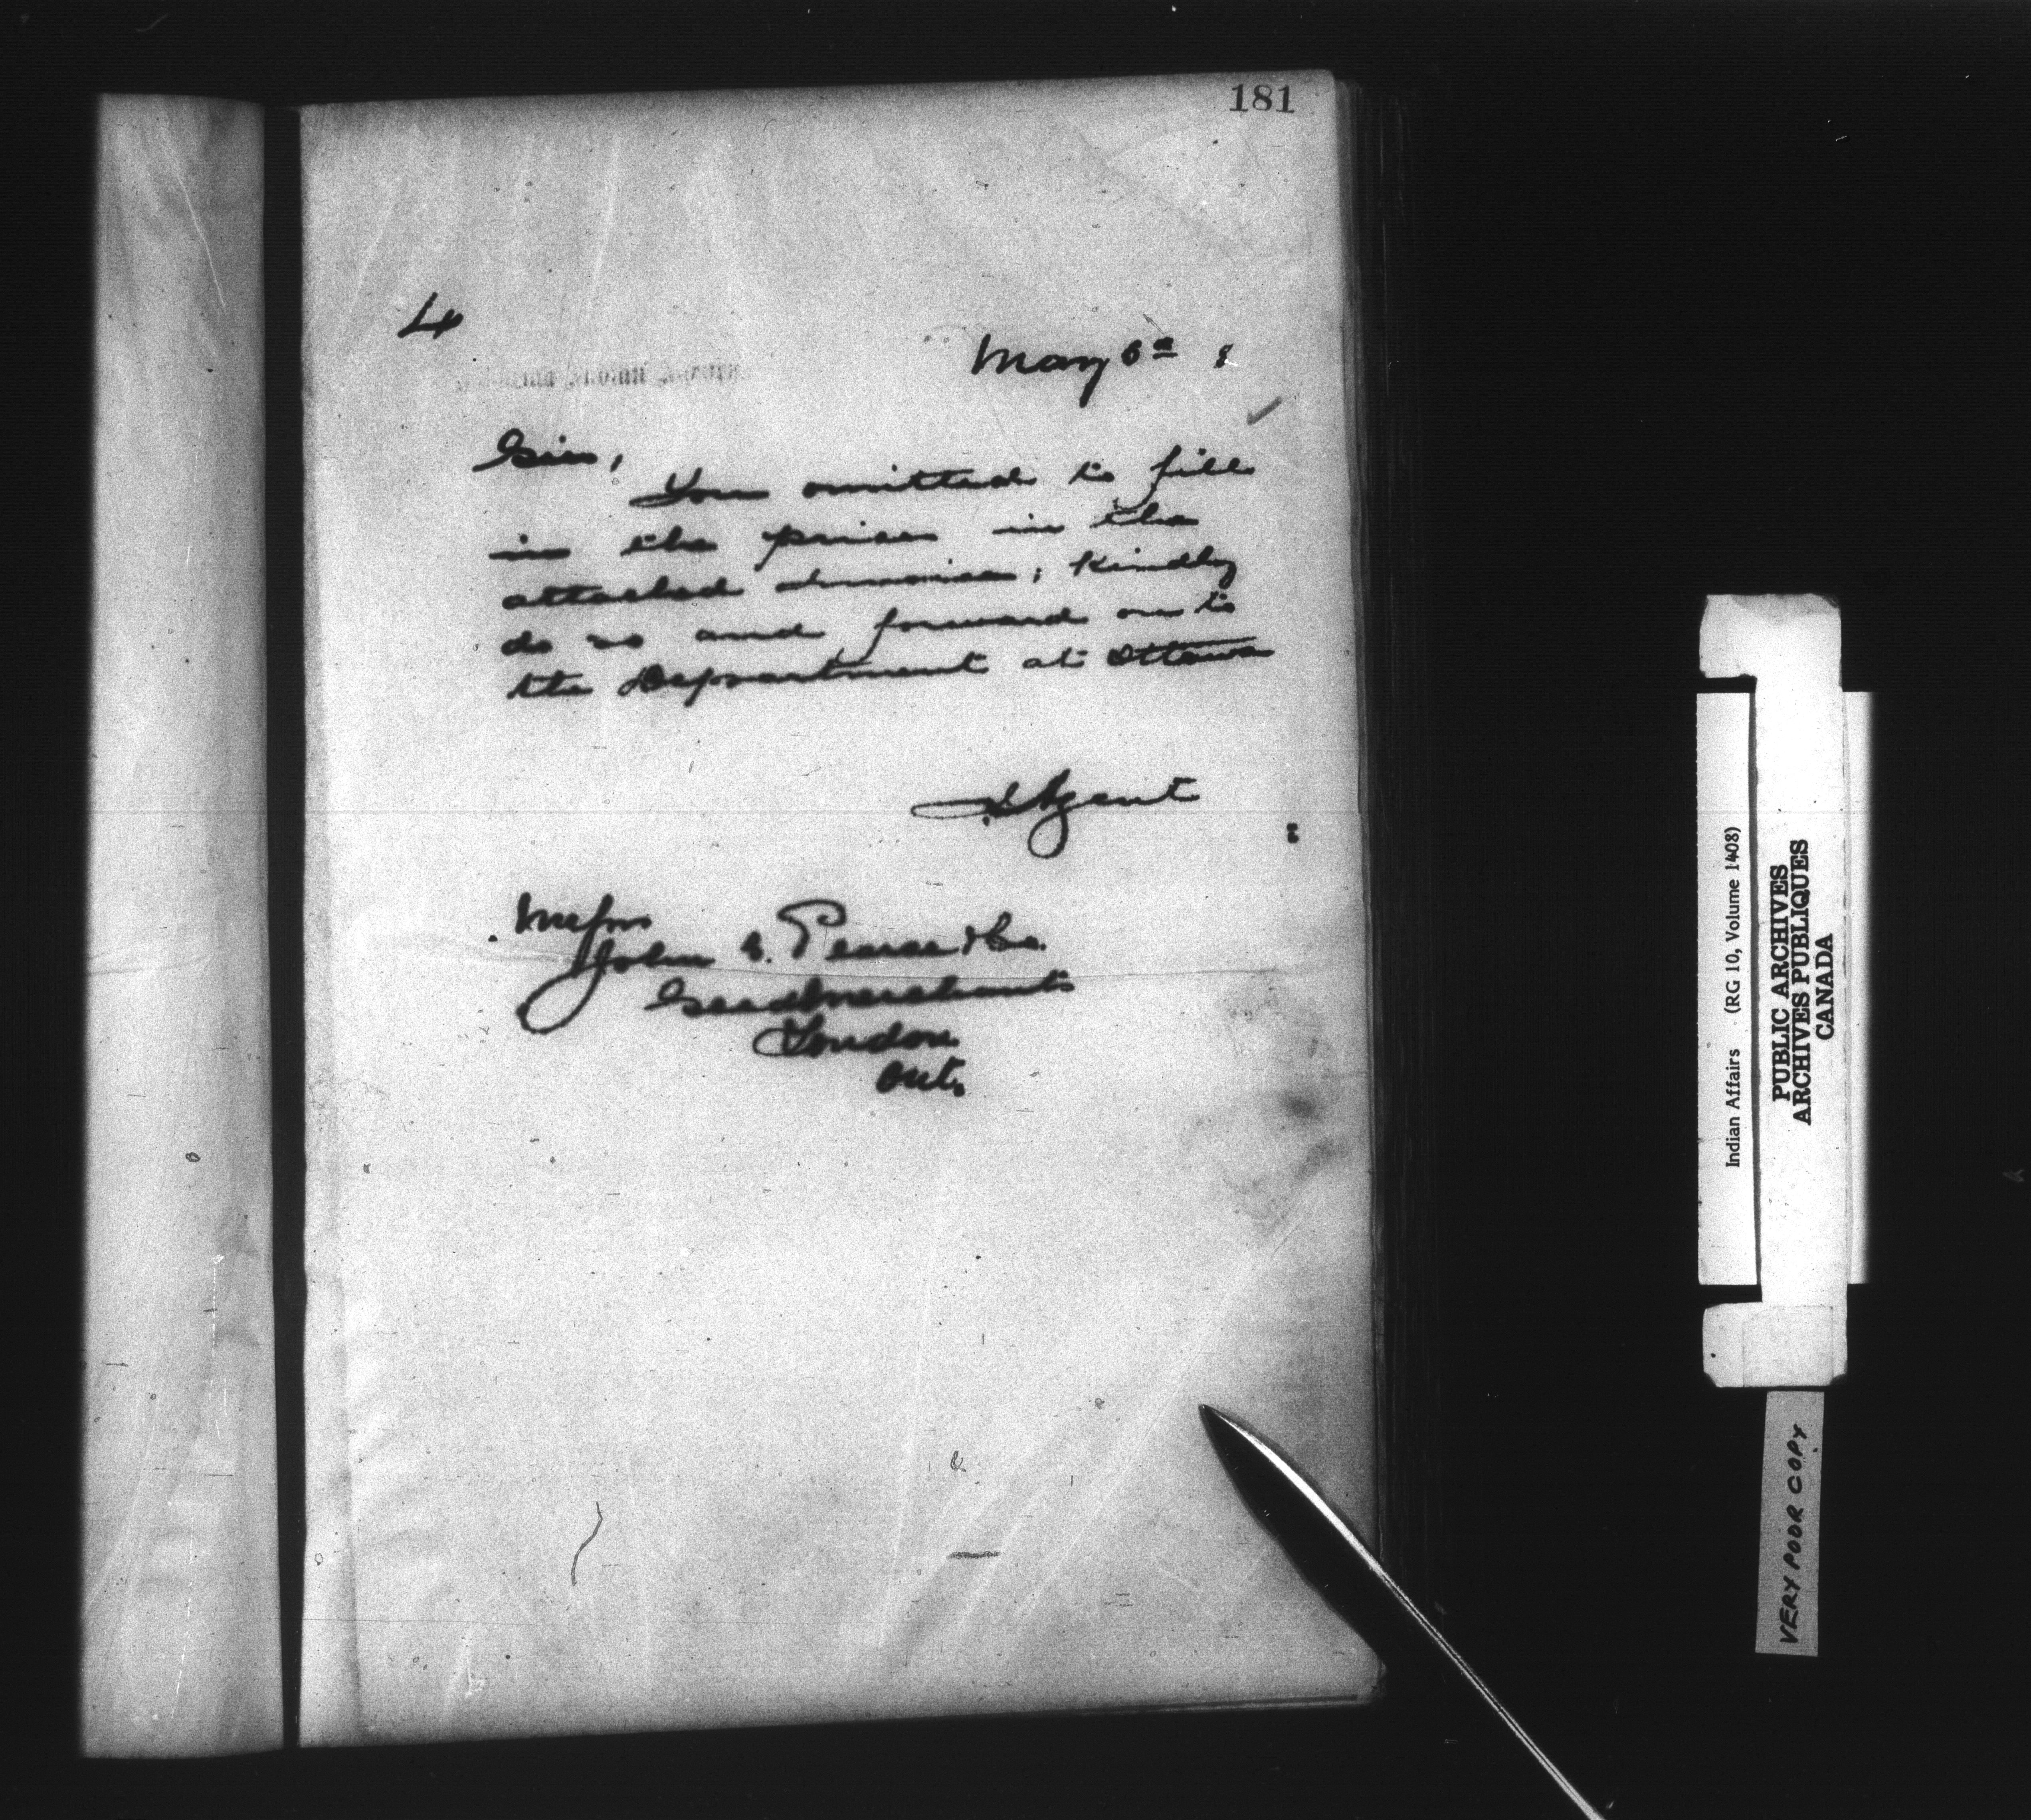 181
4
May 6th 8
Sirs,
You omitted to fill
in the prices in the
attached Invoice; Kindly
do so and forward on to
the Department at Ottawa
Agent
Messrs
John S. Pearce & Co.
Seedmerchants
London
Ont.
Indian Affairs (RG 10, Volume 1408)
PUBLIC ARCHIVES
ARCHIVES PUBLIQUES
CANADA
VERY POOR COPY